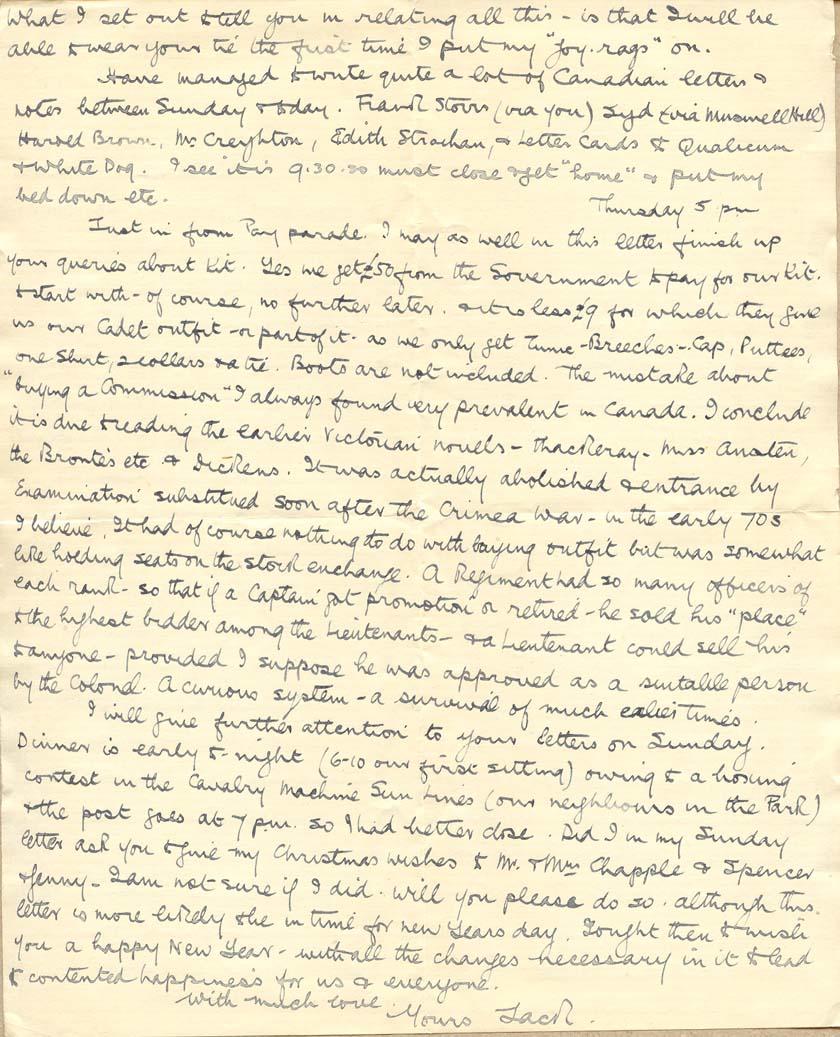 What I set out to tell you in relating all this - is that I will be
able to wear your tie the first time I put my "joy-rags" on.
Have managed to write quite a lot of Canadian letters &
notes between Sunday & today. Frank Stovis (via you) Syd (via Muswell Hill)
Harold Brown, Mr Creyghton, Edith Strachan, & Letter Cards to Qualicum
& White Dog. I see it is 9.30. so must close & get "home" & put my
bed down etc.
Thursday 5 pm
Just in from Pay parade. I may as well in this letter finish up
your queries about Kit. Yes we get £50 from the Government to pay for our Kit.
to start with - of course, no further later. & it is less £9 for which they give
us our Cadet outfit - or part of it - as we only get Tunic - Breeches - Cap, Puttees,
one Shirt, 2 collars & a tie. Boots are not included. The mistake about
"buying a Commission" I always found very prevalent in Canada. I conclude
it is due to reading the earlier Victorian novels - Thackeray - Miss Austen,
the Brontës etc & Dickens. It was actually abolished & entrance by
Examination substitued soon after the Crimea War - in the early 70s
I believe. It had of course nothing to do with buying outfit but was somewhat
like holding seats on the stock exchange. A Regiment had so many officers of
each rank - so that if a Captain got promotion or retired - he sold his "place"
to the highest bidder among the Lieutenants - & a Lieutenant could sell his
to anyone - provided I suppose he was approved as a suitable person
by the Colonel. A curious system - a survival of much earlier times.
I will give further attention to your letters on Sunday.
Dinner is early to-night (6-10 our first sitting) owing to a boxing
contest in the Cavalry Machine Gun Lines (our neighbours in the Park)
& the post goes at 7 pm. so I had better close. Did I in my Sunday
letter ask you to give my Christmas wishes to Mr. & Mrs Chapple & Spencer
& Jenny - I am not sure if I did. will you please do so. although this
letter is more likely to be in time for new Years day. I ought then to wish
you a happy New Year - with all the changes necessary in it to lead
to contented happiness for us & everyone.
With much love.
Yours Jack.